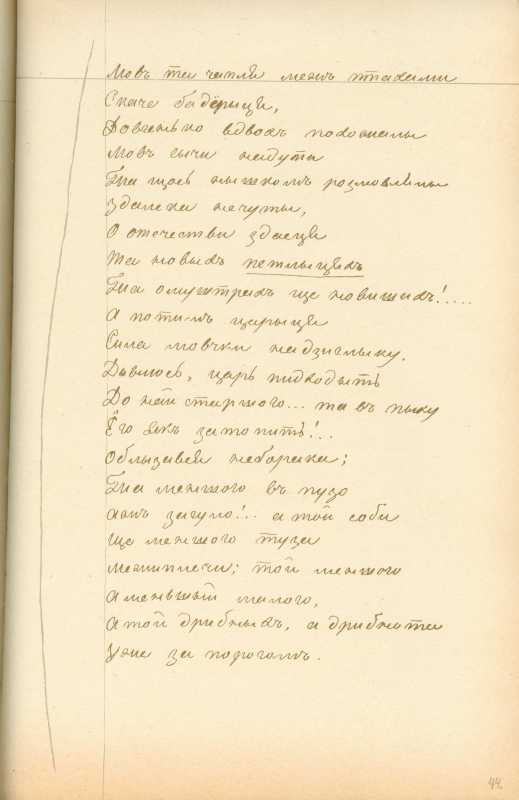 Мовъ та чапля межъ птахами
Скаче бадёрыця,
Довгенько вдвохъ походжалы
Мовъ сычи надути
Та щось нышкомъ розмовлялы
Здалека нечуты,
О отечестви здаеця
Та новыхъ петлыцяхъ
Та омуштрахъ ще новишихъ!....
А потимъ царыця
Сила мовчки надзиглыку.
Дывлюсь, царь пидходыть
До най старшого... та въ пыку
Ёго якъ затопить!..
Облызався неборака;
Та меншого въ пузо
ажъ загуло!.. а той соби
Ще меншого туза
межиплечи; той меншого
а меньшый малого,
а той дрибныхъ, а дрибнота
Уже за порогомъ.
44